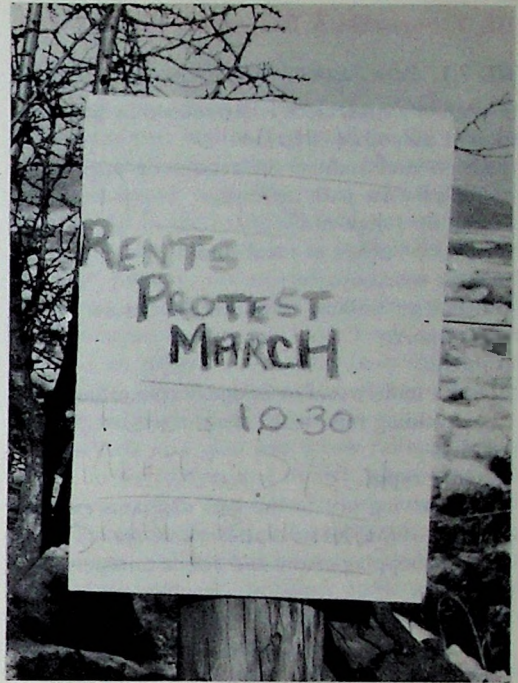 RENTS
PROTEST
MARCH
10.30